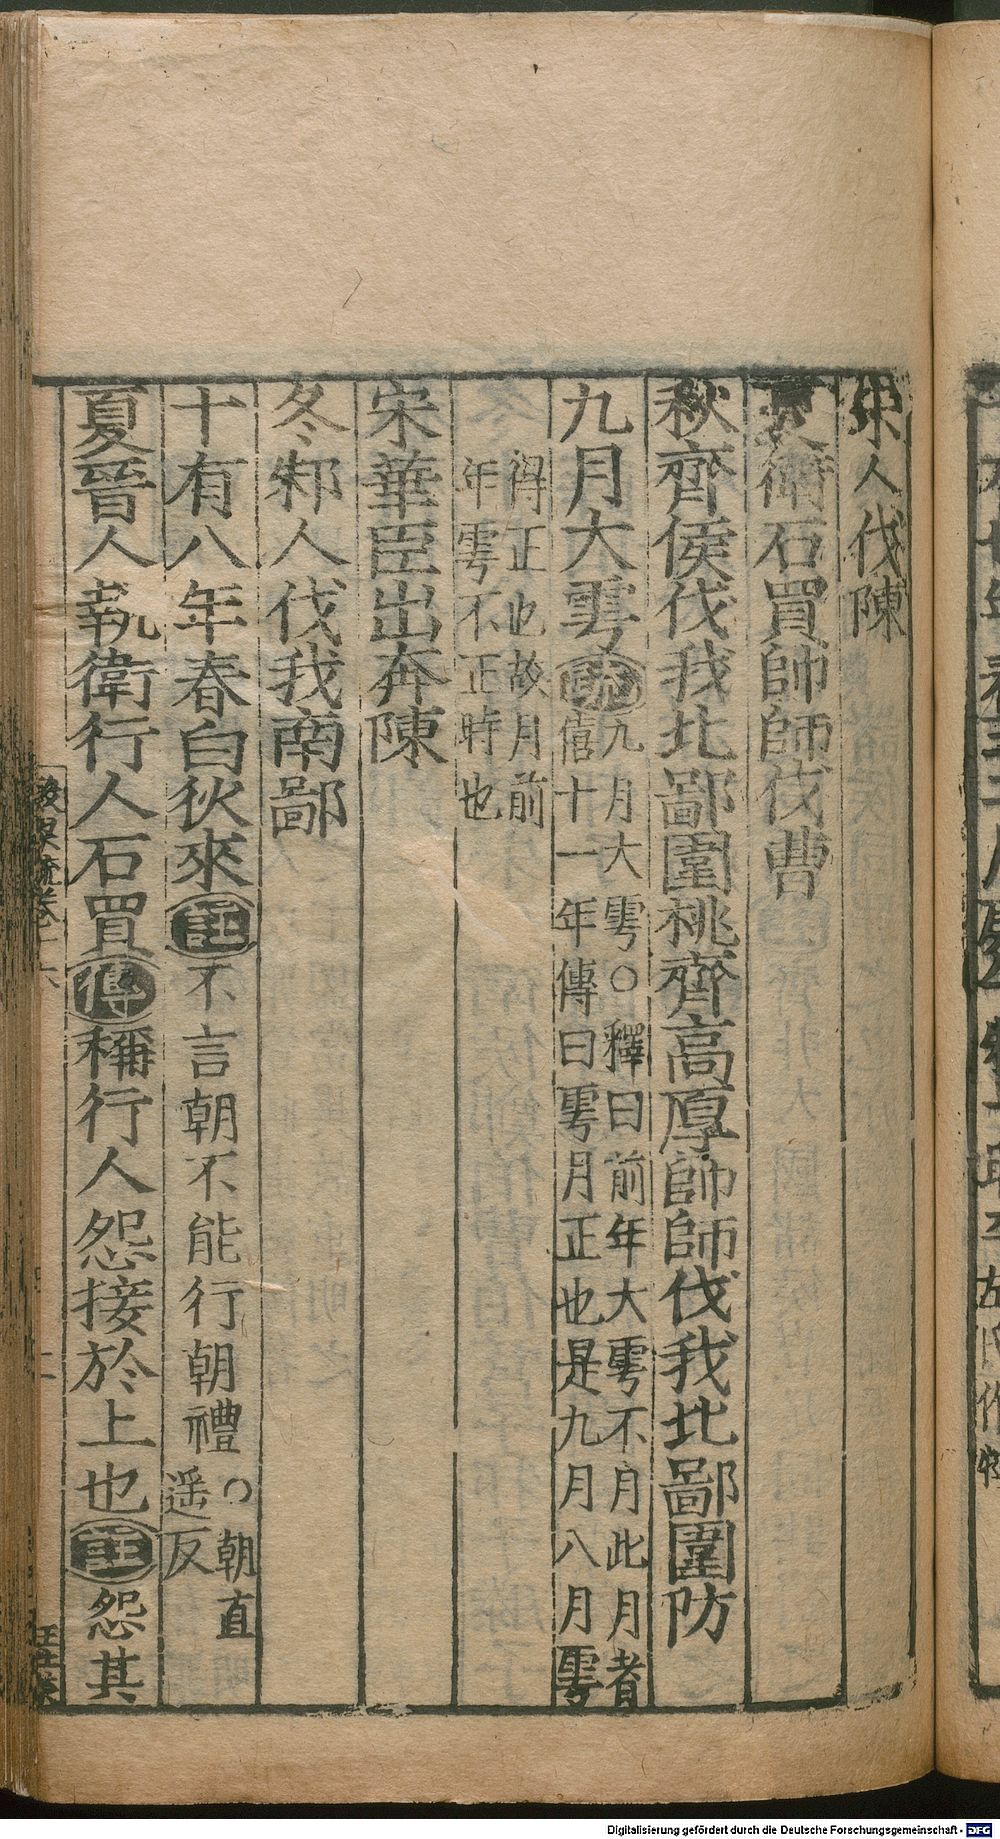 宋人伐陳
夏衛石買帥師伐曹
秋齊侯伐我北鄙圍桃齊高厚帥師伐我北鄙圍防
九月大雩疏九月大雩○釋曰前年大雩不月此月者
僖十一年傳曰雩月正也是九月八月雩
得正也故月前
年雩不正時也
宋華臣出奔陳
冬邾人伐我南鄙
十有八年春白狄來註不言朝不能行朝禮○朝直
遥反
夏晉人執衛行人石買傳稱行人怨接於上也註怨其
Digitalisierung gefördert durch die Deutsche Forschungsgemeinschaft - DFG